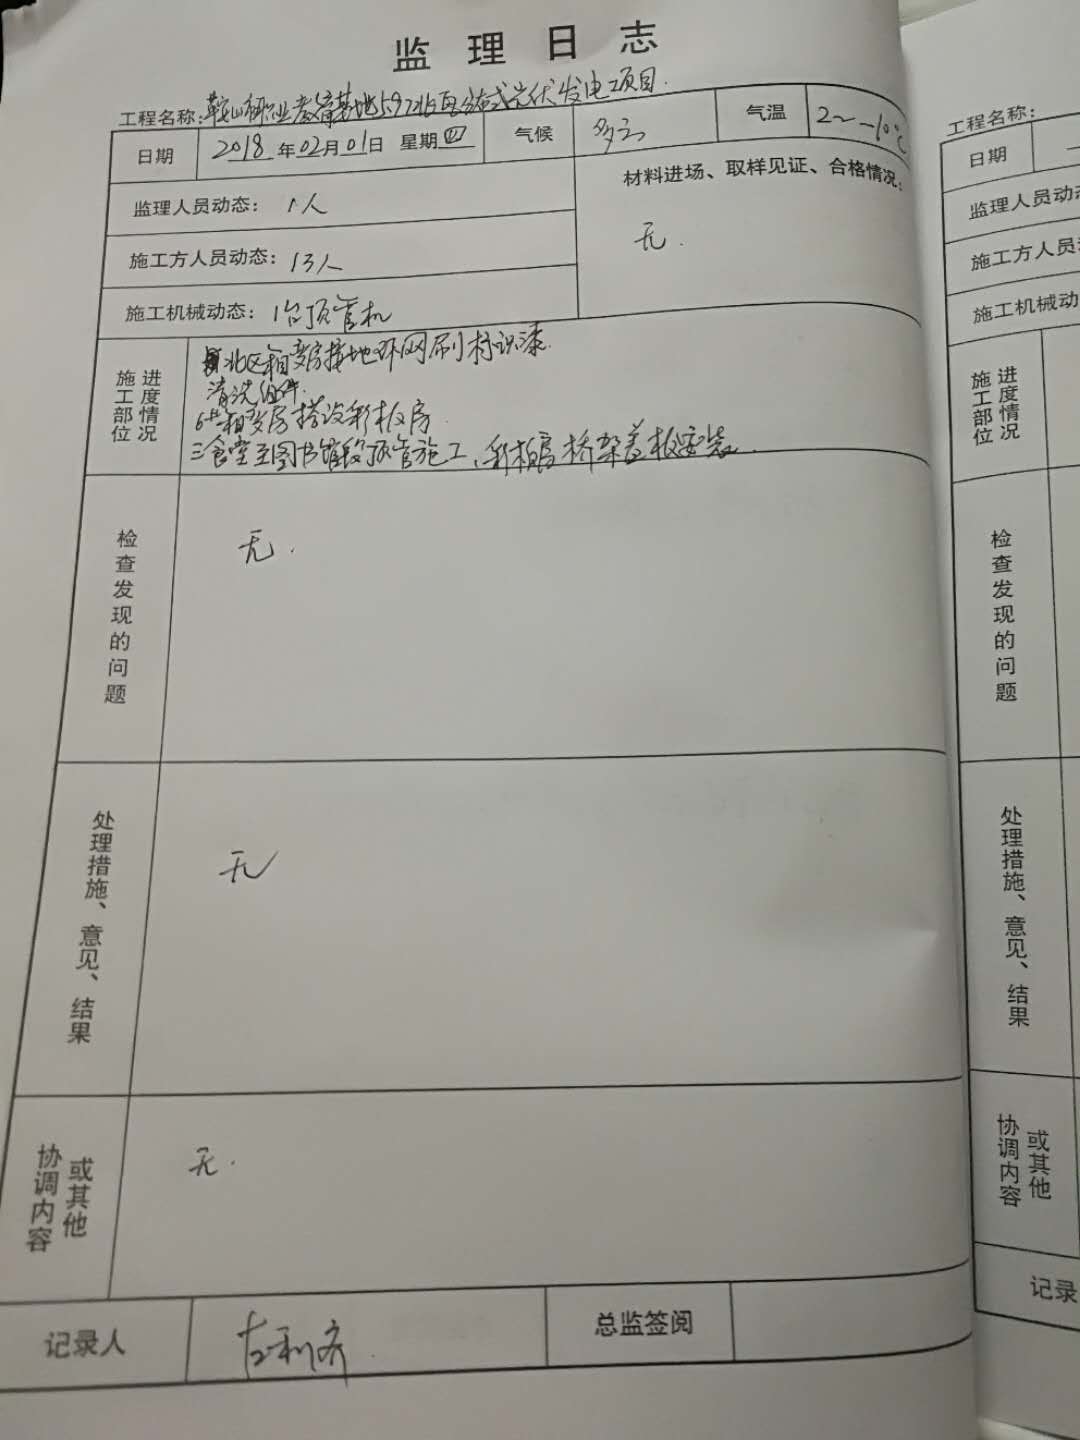 监理日志
工程名称:鞍山职业教育基地5.9726兆瓦分布式光伏发电项目.
日期 2018年02月01日 星期四 气候 多云 气温 2～-10℃
监理人员动态: 1人
材料进场、取样见证、合格情况:
无.
施工方人员动态: 13人
施工机械动态: 1台顶管机
施工部位 进度情况
北区箱变房接地环网刷标识漆.
清洗组件.
6#箱变房搭设彩板房.
三食堂至图书馆段顶管施工,彩板房桥架盖板安装.
检查发现的问题
无.
处理措施、意见、结果
无
协调内容 或其他
无.
记录人 左利齐 总监签阅
工程名称:
日期
监理人员动态
施工方人员
施工机械动
施工部位 进度情况
检查发现的问题
处理措施、意见、结果
协调内容 或其他
记录